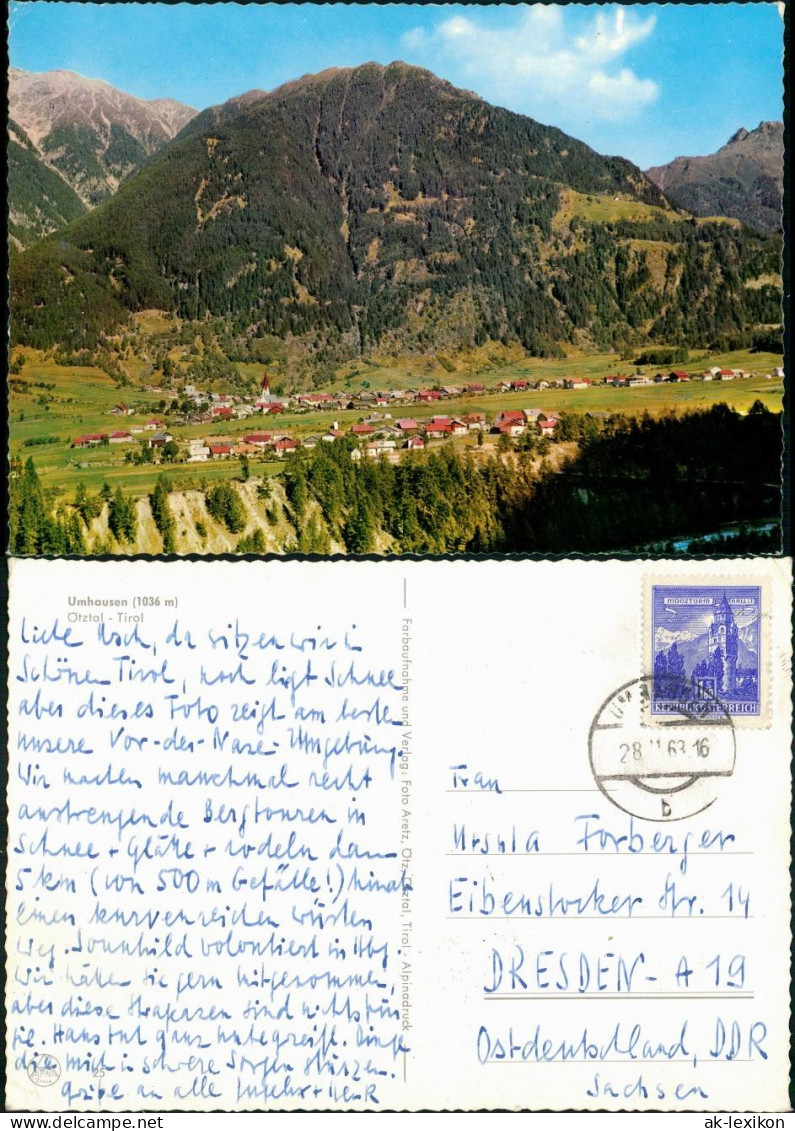 Umhausen (1036 m)
Ötztal - Tirol
Liebe Usch, da sitzen wir in
schönen Tirol, noch liegt Schnee
aber dieses Foto zeigt am besten
unsere Vor-der-Nase-Umgebung.
Wir machen manchmal recht
anstrengende Bergtouren in
Schnee + Glätte + rodeln dann
5 km (von 500 m Gefälle!) hinab
einen kurvenreichen wüsten
Weg. volontiert in Hbg
Wir hätten sie gern mitgenommen,
aber diese Strapazen sind nichts für
sie. Hans tut ganz Dinge
die mich in schwere Sorgen stürzen.
an alle
25
Farbaufnahme und Verlag: Foto Aretz, Ötz, Ötztal, Tirol - Alpinadruck
MÜNZTURM HALL I. T.
REPUBLIK ÖSTERREICH
28. II. 63. 16
b
Frau
Ursula Forberger
Eibenstocker Str. 14
DRESDEN - A 19
Ostdeutschland, DDR
Sachsen
ak-lexikon.de